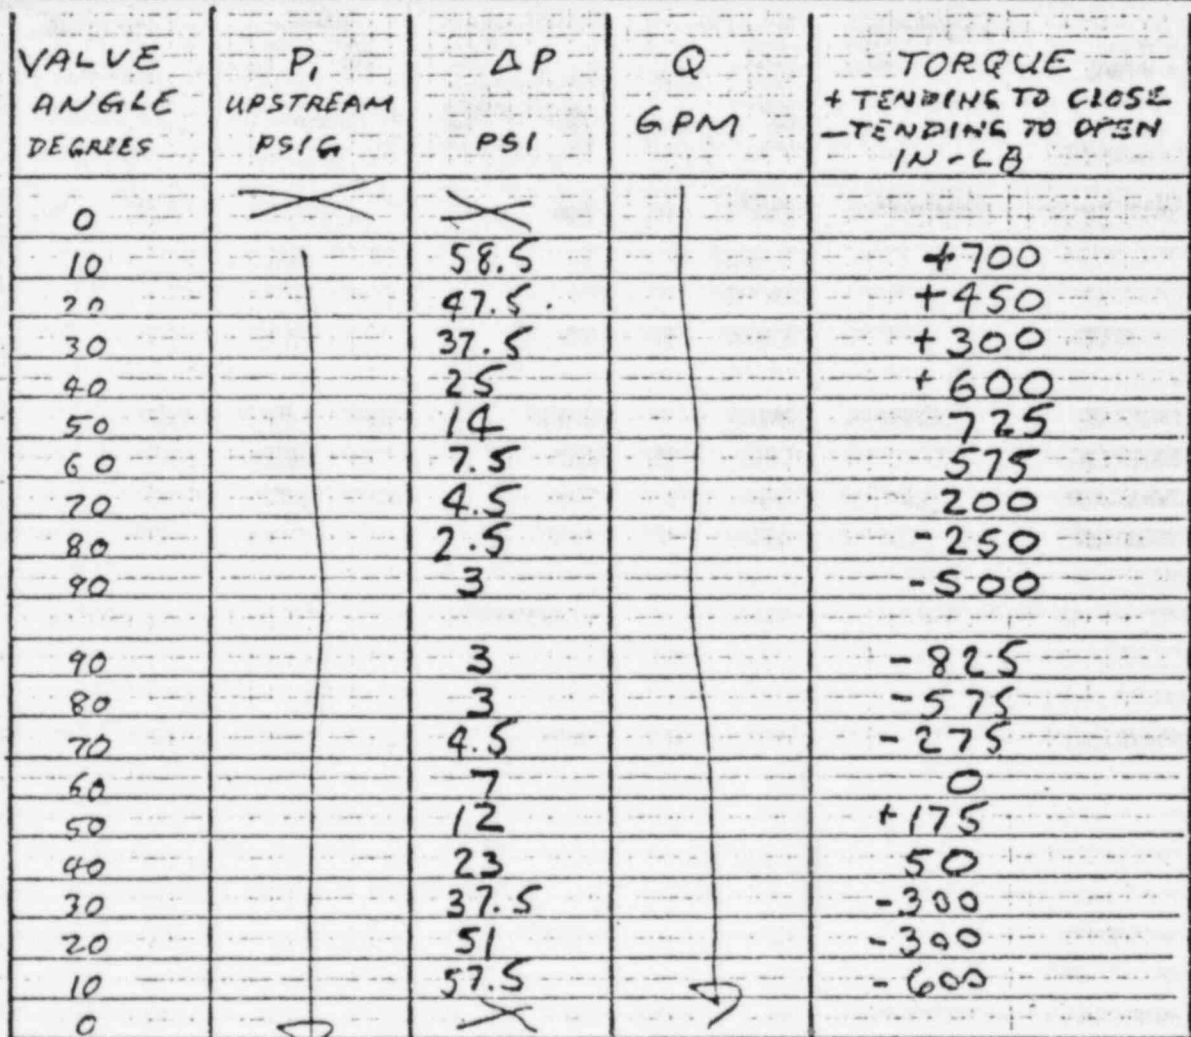 VALVE P1 ΔP Q TORQUE
ANGLE UPSTREAM PSI GPM + TENDING TO CLOSE
DEGREES PSIG - TENDING TO OPEN
IN-LB
0
10 58.5 +700
20 47.5 +450
30 37.5 +300
40 25 +600
50 14 725
60 7.5 575
70 4.5 200
80 2.5 -250
90 3 -500
90 3 -825
80 3 -575
70 4.5 -275
60 7 0
50 12 +175
40 23 50
30 37.5 -300
20 51 -300
10 57.5 -600
0